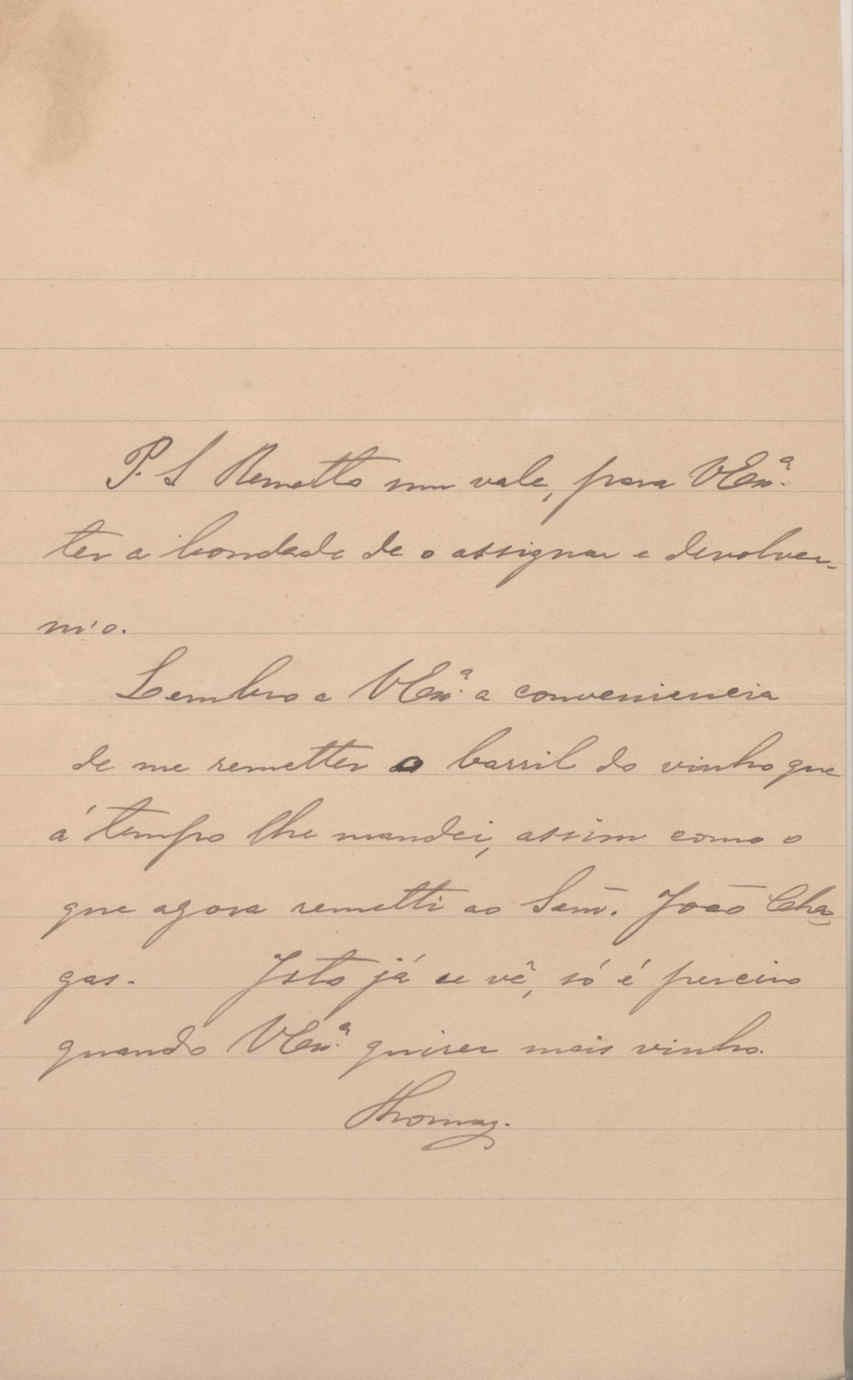 P. S Remetto um vale, para VExª.
ter a bondade de o assignar e devolver-
m'o.
Lembro a VExª. a conveniencia
de me remetter o barril do vinho que
á tempo lhe mandei, assim como o
que agora remetti ao Senr. João Cha-
gas. Isto já se vê, só é
quando VExª. quiser mais vinho.
Thomaz.